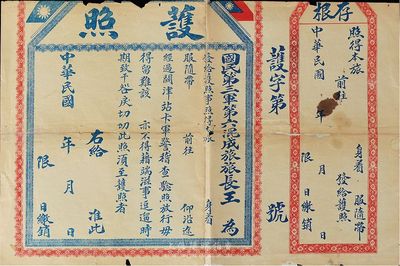 存根
照得本旅
前往
身着
服隨帶
發給護照
中華民國
年
月
日
限
日繳銷
護字第
號
護照
國民第三軍第六混成旅旅長王 為
發給護照事照得本旅
身着
服隨帶
前往
仰沿途
經過關津站卡軍警稽查驗照放行毋
得留難該
亦不得藉端滋事逗遛時
期致干咎戾切切此照須至護照者
右給
准此
中華民國
年
月
日
限
日繳銷